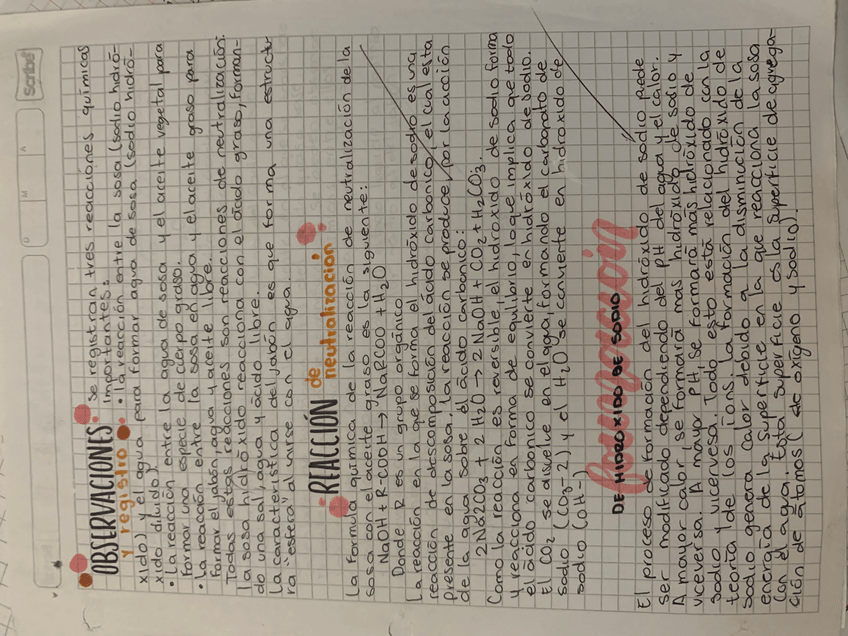 Scribe
D M A
OBSERVACIONES
y registro
Se registran tres reacciónes químicas
importantes:
• la reacción entre la sosa (sodio hidró-
xido) y el agua para formar agua de sosa (sodio hidró-
xido diluido)
• La reacción entre el agua de sosa y el aceite vegetal para
Formar una especie de cuerpo graso.
• La reacción entre la sosa en agua y el aceite graso para
Formar el jabón, agua y aceite libre.
Todas estas reacciones son reacciones de neutralización:
la sosa hidróxido reacciona con el ácido graso, forman-
do una sal, agua y ácido libre.
La característica del jabón es que forma una estructu
ra "esfera" al unirse con el agua.
REACCIÓN de neutralización
La Formula química de la reacción de neutralización de la
sosa con el aceite graso es la siguiente:
NaOH + R-COOH → NaRCOO + H2O
Donde R es un grupo orgánico
La reacción en la que se forma el hidróxido de sodio es una
reacción de descomposición del ácido carbonico, el cual esta
presente en la sosa, la reacción se produce por la acción
de la agua sobre el ácido carbonio:
2Na2CO3 + 2 H2O → 2 NaOH + CO2 + H2CO3.
Como la reacción es reversible, el hidróxido de sodio forma
y reacciona en forma de equilibrio, lo que implica que todo
el ácido carbonico se convierte en hidróxido de sodio.
El CO2 se disuelve en el agua, formando el carbopato de
sodio (CO3-2) y el H2O se convierte en hidroxido de
sodio (OH-)
formación
DE HIDROXIDO DE SODIO
El proceso de formación del hidróxido de sodio puede
ser modificado dependiendo del PH del agua y el calor.
A mayor calor, se formará más hidróxido de sodio y
viceversa. A mayor PH, se formará más hidróxido de
Sodio y vicervesa. Todo esto está relacionado con la
teoría de los ions. La formación del hidróxido de
sodio genera calor debido a la disminución de la
energía de la superficie en la que reacciona la sosa
con el agua. Esta superficie es la superficie de agrega
ción de átomos (de oxígeno y sodio).